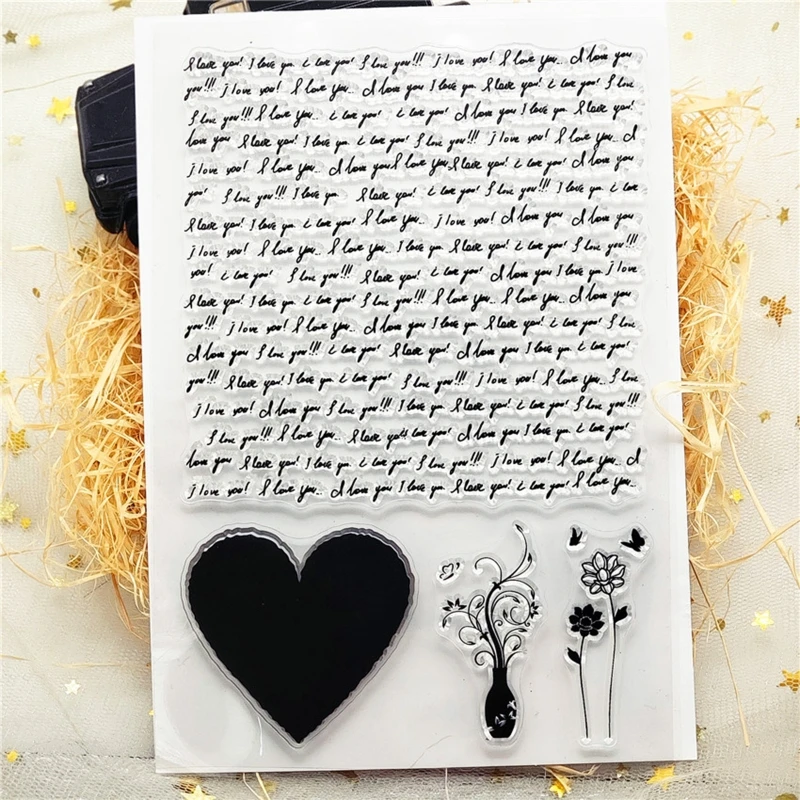 I love you! I love you. i love you! I love you!!! j love you! I love you.. I love you
you!!! j love you! I love you.. I love you I love you. I love you! i love you! I love
I love you!!! I love you.. i love you! i love you! I love you I love you. I love you!
love you I love you! I love you. i love you! I love you!!! j love you! I love you.. I
j love you! I love you.. I love you I love you.. I love you! i love you! I love you
you! I love you!!! I love you. I love you! i love you! I love you!!! I love you. i love
I love you! I love you. i love you! I love you.. j love you! I love you I love you
j love you! I love you.. I love you.. I love you. I love you! i love you! I love you!!!
you! i love you! I love you!!! I love you! i love you! I love you I love you. j love
I love you! I love you. i love you! I love you!!! I love you.. I love you.. I love you
you!!! j love you! I love you.. I love you I love you. I love you! i love you! I love
I love you I love you!!! i love you! I love you! I love you. I love you.. i love you!
you!!! I love you! I love you. i love you! I love you!!! j love you! I love you.. I love
j love you! I love you I love you!!! I love you. I love you! i love you! I love you!!!
I love you!!! I love you.. I love you! i love you! I love you I love you. i love you!
love you I love you! I love you. i love you! I love you!!! j love you! I love you.. I
j love you! I love you.. I love you I love you. I love you! i love you! I love you..